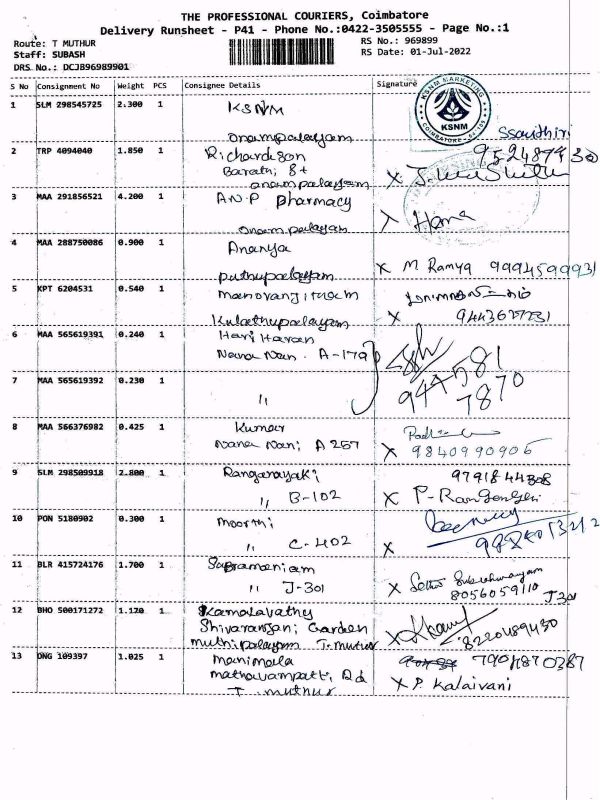 THE PROFESSIONAL COURIERS, Coimbatore
Delivery Runsheet - P41 - Phone No.:0422-3505555 - Page No.:1
Route: T MUTHUR
RS No.: 969899
Staff: SUBASH
RS Date: 01-Jul-2022
DRS No.: DCJB96989901
S No Consignment No Weight PCS Consignee Details Signature
1 SLM 298545725 2.300 1 KSNM
KSNM MARKETING
KSNM
COIMBATORE
onampalayam
2 TRP 4094040 1.850 1 Richardson
Barathi St
onampalayam
3 MAA 291856521 4.200 1 A.N.P Pharmacy
onampalayam X Hema
4 MAA 288750086 0.900 1 Ananya
puthupalayam X M Ramya 9994599931
5 KPT 6204531 0.540 1 manoranjitham
Kulathupalayam X 9443627231
6 MAA 565619391 0.240 1 Hari Haran
Nana Nani A-179
944581
7870
7 MAA 565619392 0.230 1 "
8 MAA 566376982 0.425 1 Kumar
Nana Nani A 257 X 9840990906
9 SLM 298509918 2.800 1 Ranganayaki
" B-102 9791844308
X P-
10 PON 5180902 0.300 1 moorthi
" C-402 X
11 BLR 415724176 1.700 1 Supramaniam
" J-301 X
8056059110 J301
12 BHO 500171272 1.120 1 Kamalavathy
Shivaranjani Garden
muthipalayam T.muthur X 8220489430
13 DNG 109397 1.025 1 manimala
mathavampatti Rd
T. muthur
7904870387
X P. Kalaivani